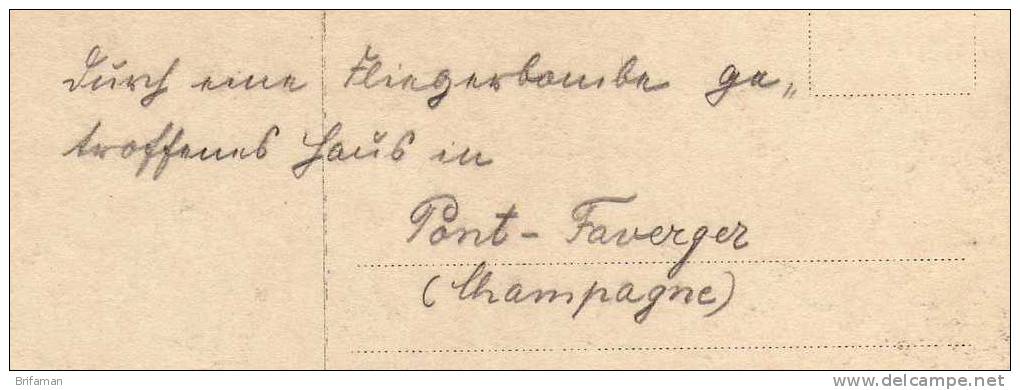 Durch eine Fliegerbombe ge„
troffenes Haus in
Pont-Faverger
(Champagne)
Brifaman
delcampe.net